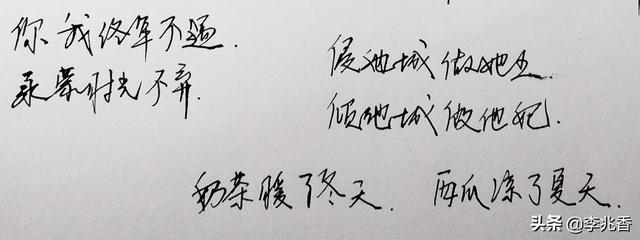 你我终年不遇.
承蒙时光不弃.
侵她城做她王
倾他城做他妃.
奶茶暖了冬天. 西瓜凉了夏天.
头条@李兆香